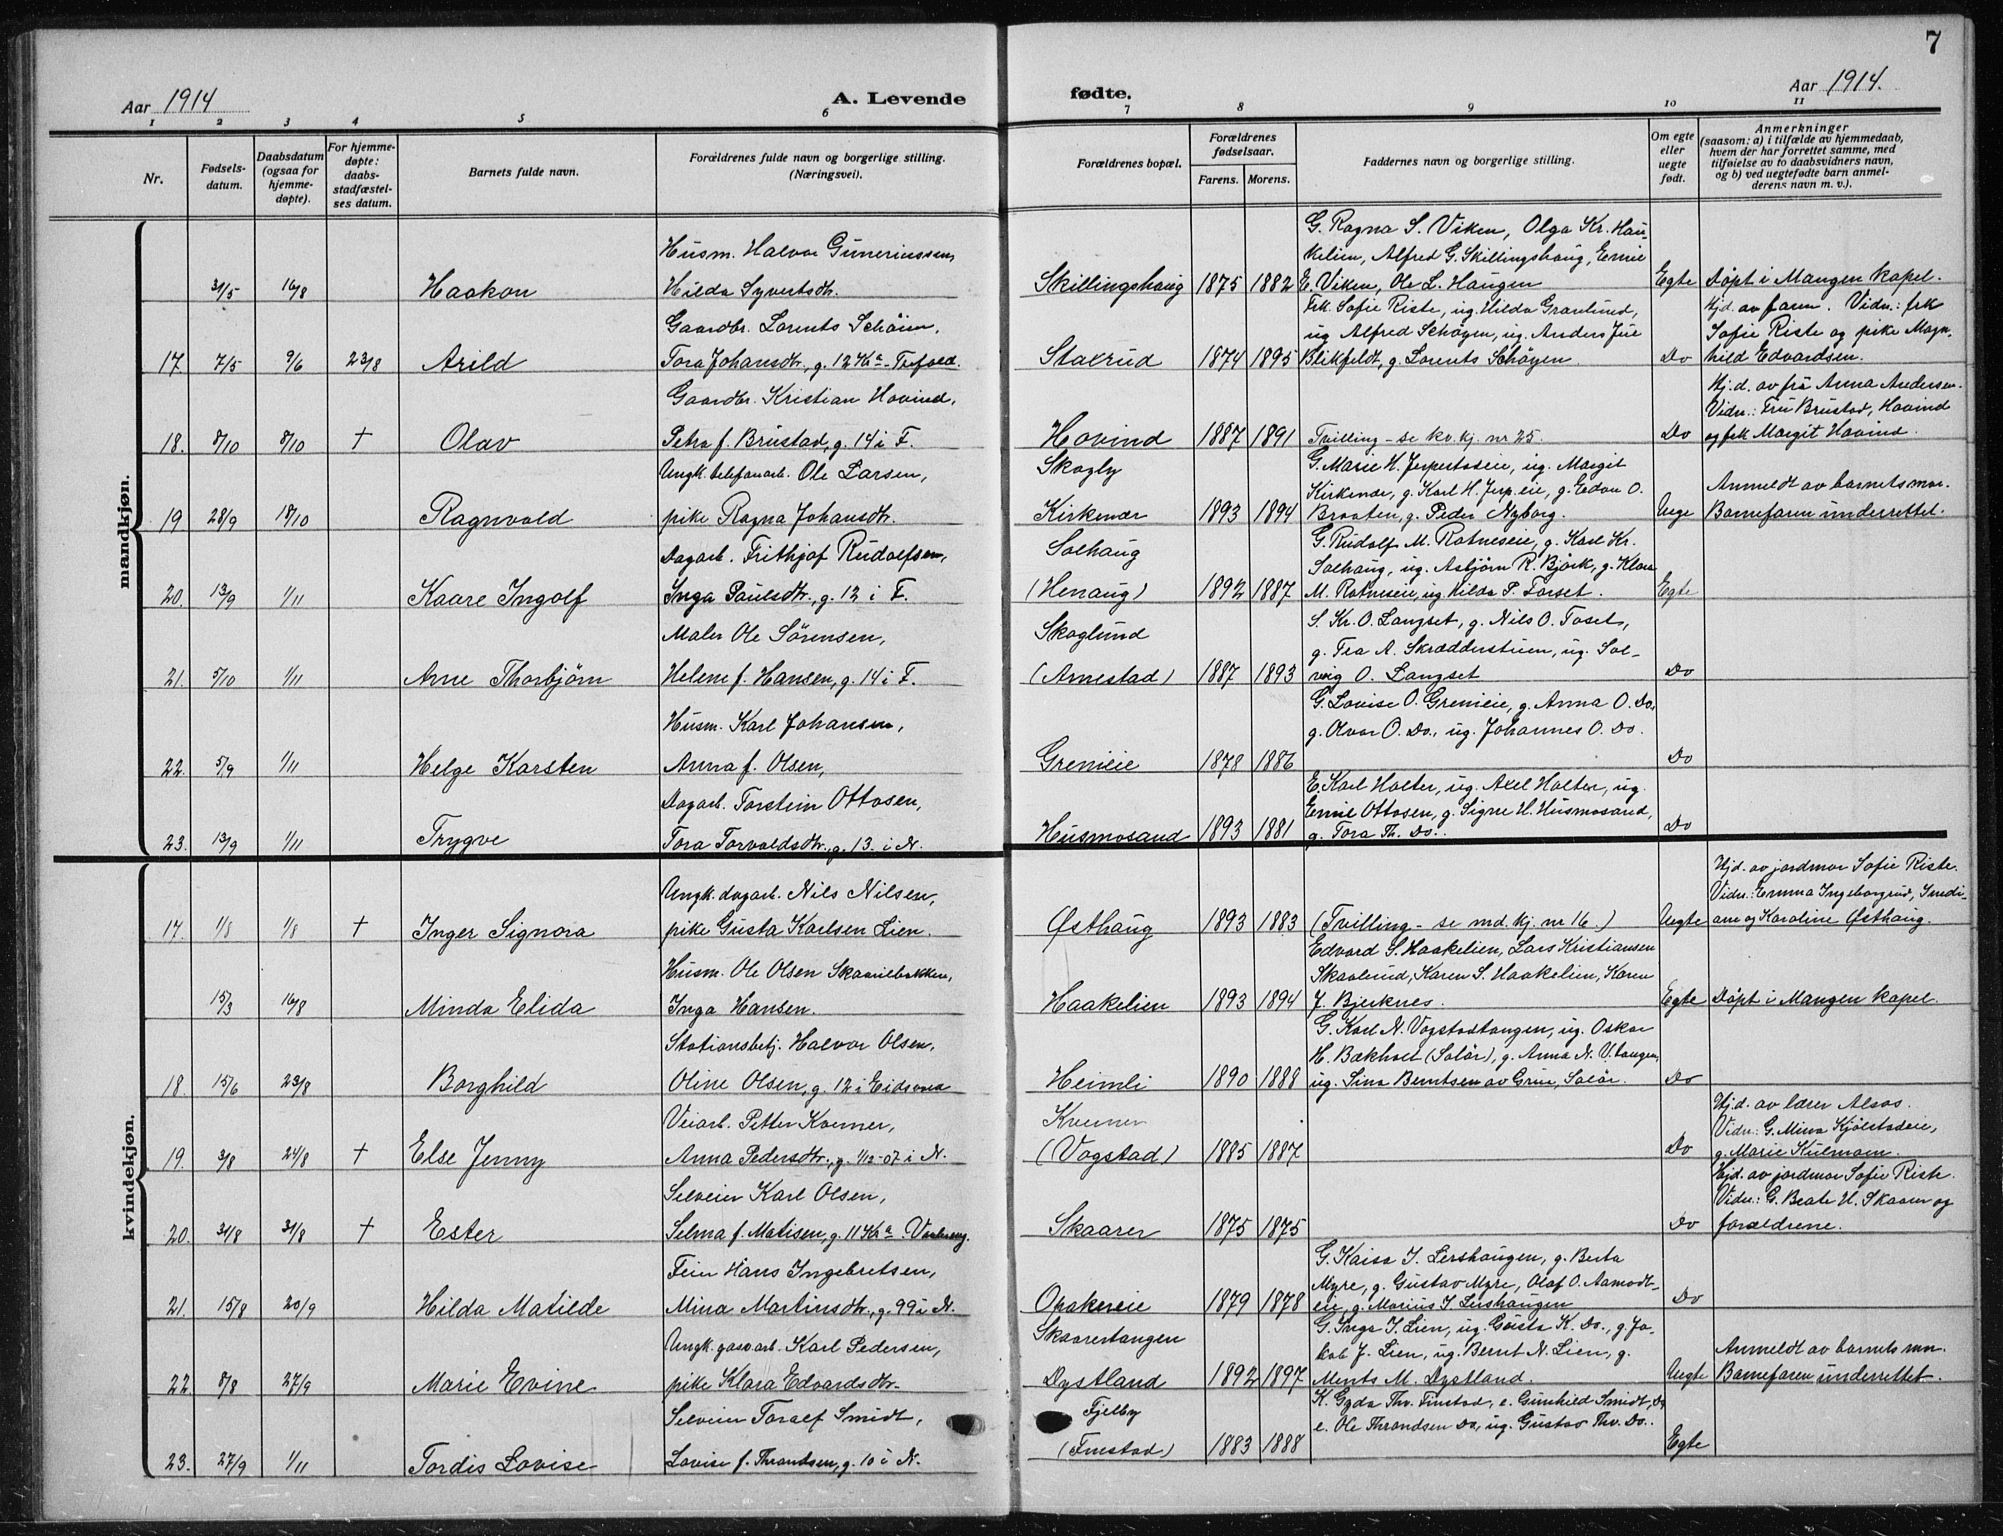 7
Aar 1914
A. Levende
fødte.
Aar 1914.
1 2 3 4 5 6 7 8 9 10 11
Nr.
Fødsels-
datum.
Daabsdatum
(ogsaa for
hjemme-
døpte).
For hjemme-
døpte:
daabs-
stadfæstel-
ses datum.
Barnets fulde navn.
Forældrenes fulde navn og borgerlige stilling.
(Næringsvei).
Forældrenes bopæl.
Forældrenes
fødselsaar.
Farens. Morens.
Faddernes navn og borgerlige stilling.
Om egte
eller
uegte
født.
Anmerkninger
(saasom: a) i tilfælde av hjemmedaab,
hvem der har forrettet samme, med
tilføielse av to daabsvidners navn,
og b) ved uegtefødte barn anmel-
derens navn m. v.).
mandkjøn.
Husm. Halvor Guneriussen,
G. Ragna S. Viken, Olga Kr. Hau-
kelien, Alfred G. Skillingshaug, Emil
31/5 16/8 Haakon Hilda Syvertsdtr. Skillingshaug 1875 1882 E. Viken, Ole L. Haugen Egte Døpt i Mangen kapel.
Gaardbr. Lorents Schøien,
Frk. Sofie Riste, ug. Hilda Granlund,
ug. Alfred Schøyen, ug. Anders Jue
Hjd. av faren. Vidn.: frk
Sofie Riste og pike Magn-
17. 7/5 9/6 23/8 Arild Tora Johansdtr., g. 12 Kra- Trefold. Stalrud 1874 1895 Blikfeldt, g. Lorents Schøyen Do hild Edvardsen.
Gaardbr. Kristian Hovind,
Hj.d. av frk Anna Andersen.
Vidn.: Fru Brustad, Hovind
18. 8/10 8/10 † Olav Petra f. Brustad, g. 14 i F. Hovind 1887 1891 Tvilling - se kv. kj. nr 25. Do og frk Margit Hovind.
Ungk. telefonarb. Ole Larsen,
Skogly
G. Marie H. Jerpertaseie, ug. Margit
Kirkenær, g. Karl H. Jerp.eie, g. Edva O.
Anmeldt av barnets mor.
19 28/9 18/10 Ragnvald pike Ragna Johansdtr. Kirkenær 1893 1894 Braaten, g. Peder Nyborg. Uegte Barnefaren underrettet.
Dagarb. Frithjof Rudolfsen,
Solhaug
G. Rudolf M. Ratneseie, g. Karl Kr.
Solhaug, ug. Asbjørn R. Bjørk, g. Klara
20. 13/9 1/11 Kaare Ingolf Inga Paulsdtr., g. 12 i F. (Henaug) 1892 1887 M. Ratneseie, ug. Hilda P. Torset. Egte
Maler Ole Sørensen,
Skoglund
S. Kr. O. Langset, g. Nils O. Toset,
g. Tea A. Skrædderstuen, ug. Sol-
21. 5/10 1/11 Arne Thorbjørn Helene f. Hansen, g. 14 i F. (Arnestad) 1887 1893 veig O. Langset Do
Husm. Karl Johansen,
G. Lovise O. Grenieie, g. Anna O. Do,
g. Olvar O. Do., ug. Johannes O. Do.
22. 5/9 1/11 Helge Karsten Anna f. Olsen, Grenieie 1878 1886 Do
Dagarb. Torstein Ottosen,
E. Karl Halter, ug. Axel Halter, ug.
Emil Ottosen, g. Signe H. Husmosand,
23. 13/9 1/11 Trygve Tora Torvaldsdtr., g. 13. i N. Husmosand 1893 1881 g. Tora Th. Do. Do
kvindekjøn.
Ungk. dagarb. Nils Nilsen,
Hjd. av jordmor Sofie Riste.
Vidn.: Emma Ingeborgrud, Smedi-
17. 1/8 1/8 † Inger Signora pike Gusta Karlsen Lien. Østhaug 1893 1883 (Tvilling - se md. kj. nr 16) Uegte ane og Karoline Østhaug.
Husm. Ole Olsen Skaariebakken,
Edvard S. Haakelien, Lars Kristiansen
Skaalrud, Karen S. Haakelien, Karen
15/3 16/8 Minda Elida Inga Hansen. Haakelien 1893 1894 J. Bjerknes. Egte Døpt i Mangen kapel.
Stationsbetj. Halvor Olsen,
G. Karl N. Vogstadtangen, ug. Oskar
H. Bækholt (Solør), g. Anna N. V.tangen,
18. 15/6 23/8 Borghild Oline Olsen, g. 12 i Eidsvold Heimli 1890 1888 ug. Sina Berntsen av Grue, Solør. Do
Veiarb. Petter Kverner,
Kverner
Hjd. av lærer Alsos.
Vidn.: G. Mina Kjølstadeie,
19. 3/8 24/8 † Else Jenny Anna Pedersdtr., g. 1/12-07 i N. (Vogstad) 1885 1887 Do g. Marie Kulmoen.
Selveier Karl Olsen,
Hjd. av jordmor Sofie Riste.
Vidn.: G. Beate H. Skaaren og
20. 31/8 31/8 † Ester Selma f. Matisen, g. 11 Kra Vaalereng. Skaarer 1875 1875 Do forældrene.
Feier Hans Ingebretsen,
G. Kaisa J. Lershaugen, g. Berta
Myre, g. Gustav Myre, Olaf O. Aamodt-
21. 15/8 20/9 Hilda Matilde Mina Martinsdtr., g. 99 i N. Opakereie 1879 1878 eie, g. Marius J. Lershaugen Do
Ungk. gasarb. Karl Pedersen,
Skaarestangen
G. Inga J. Lien, ug. Gusta K. Do., g. Ja-
kob J. Lien, ug. Bernt N. Lien, g.
Anmeldt av barnets mor.
22 8/8 27/9 Marie Evine pike Klara Edvardsdtr. Dystland 1892 1897 Ments M. Dystland. Uegte Barnefaren underrettet.
Selveier Toralf Smidt,
Fjelby
K. Gyda Thv. Finstad, e. Gunhild Smidt, Do
e. Ole Throndsen Do, ug. Gustav Thv. Do.
23. 27/9 1/11 Tordis Lovise Lovise f. Throndsen, g. 10 i N. (Finstad) 1883 1888 Egte